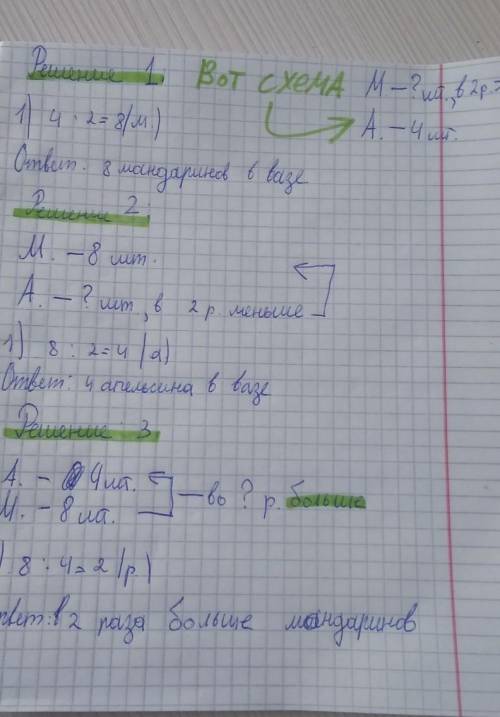 Решение 1. Вот схема М – ? шт., в 2 р. >
1) 4 · 2 = 8 (м.) А. – 4 шт.
Ответ: 8 мандаринов в вазе
Решение 2:
М. – 8 шт.
А. – ? шт, в 2 р. меньше
1) 8 : 2 = 4 (а)
Ответ: 4 апельсина в вазе
Решение 3
А. – 4 шт.
М. – 8 шт. – во ? р. больше
) 8 : 4 = 2 (р.)
твет: в 2 раза больше мандаринов